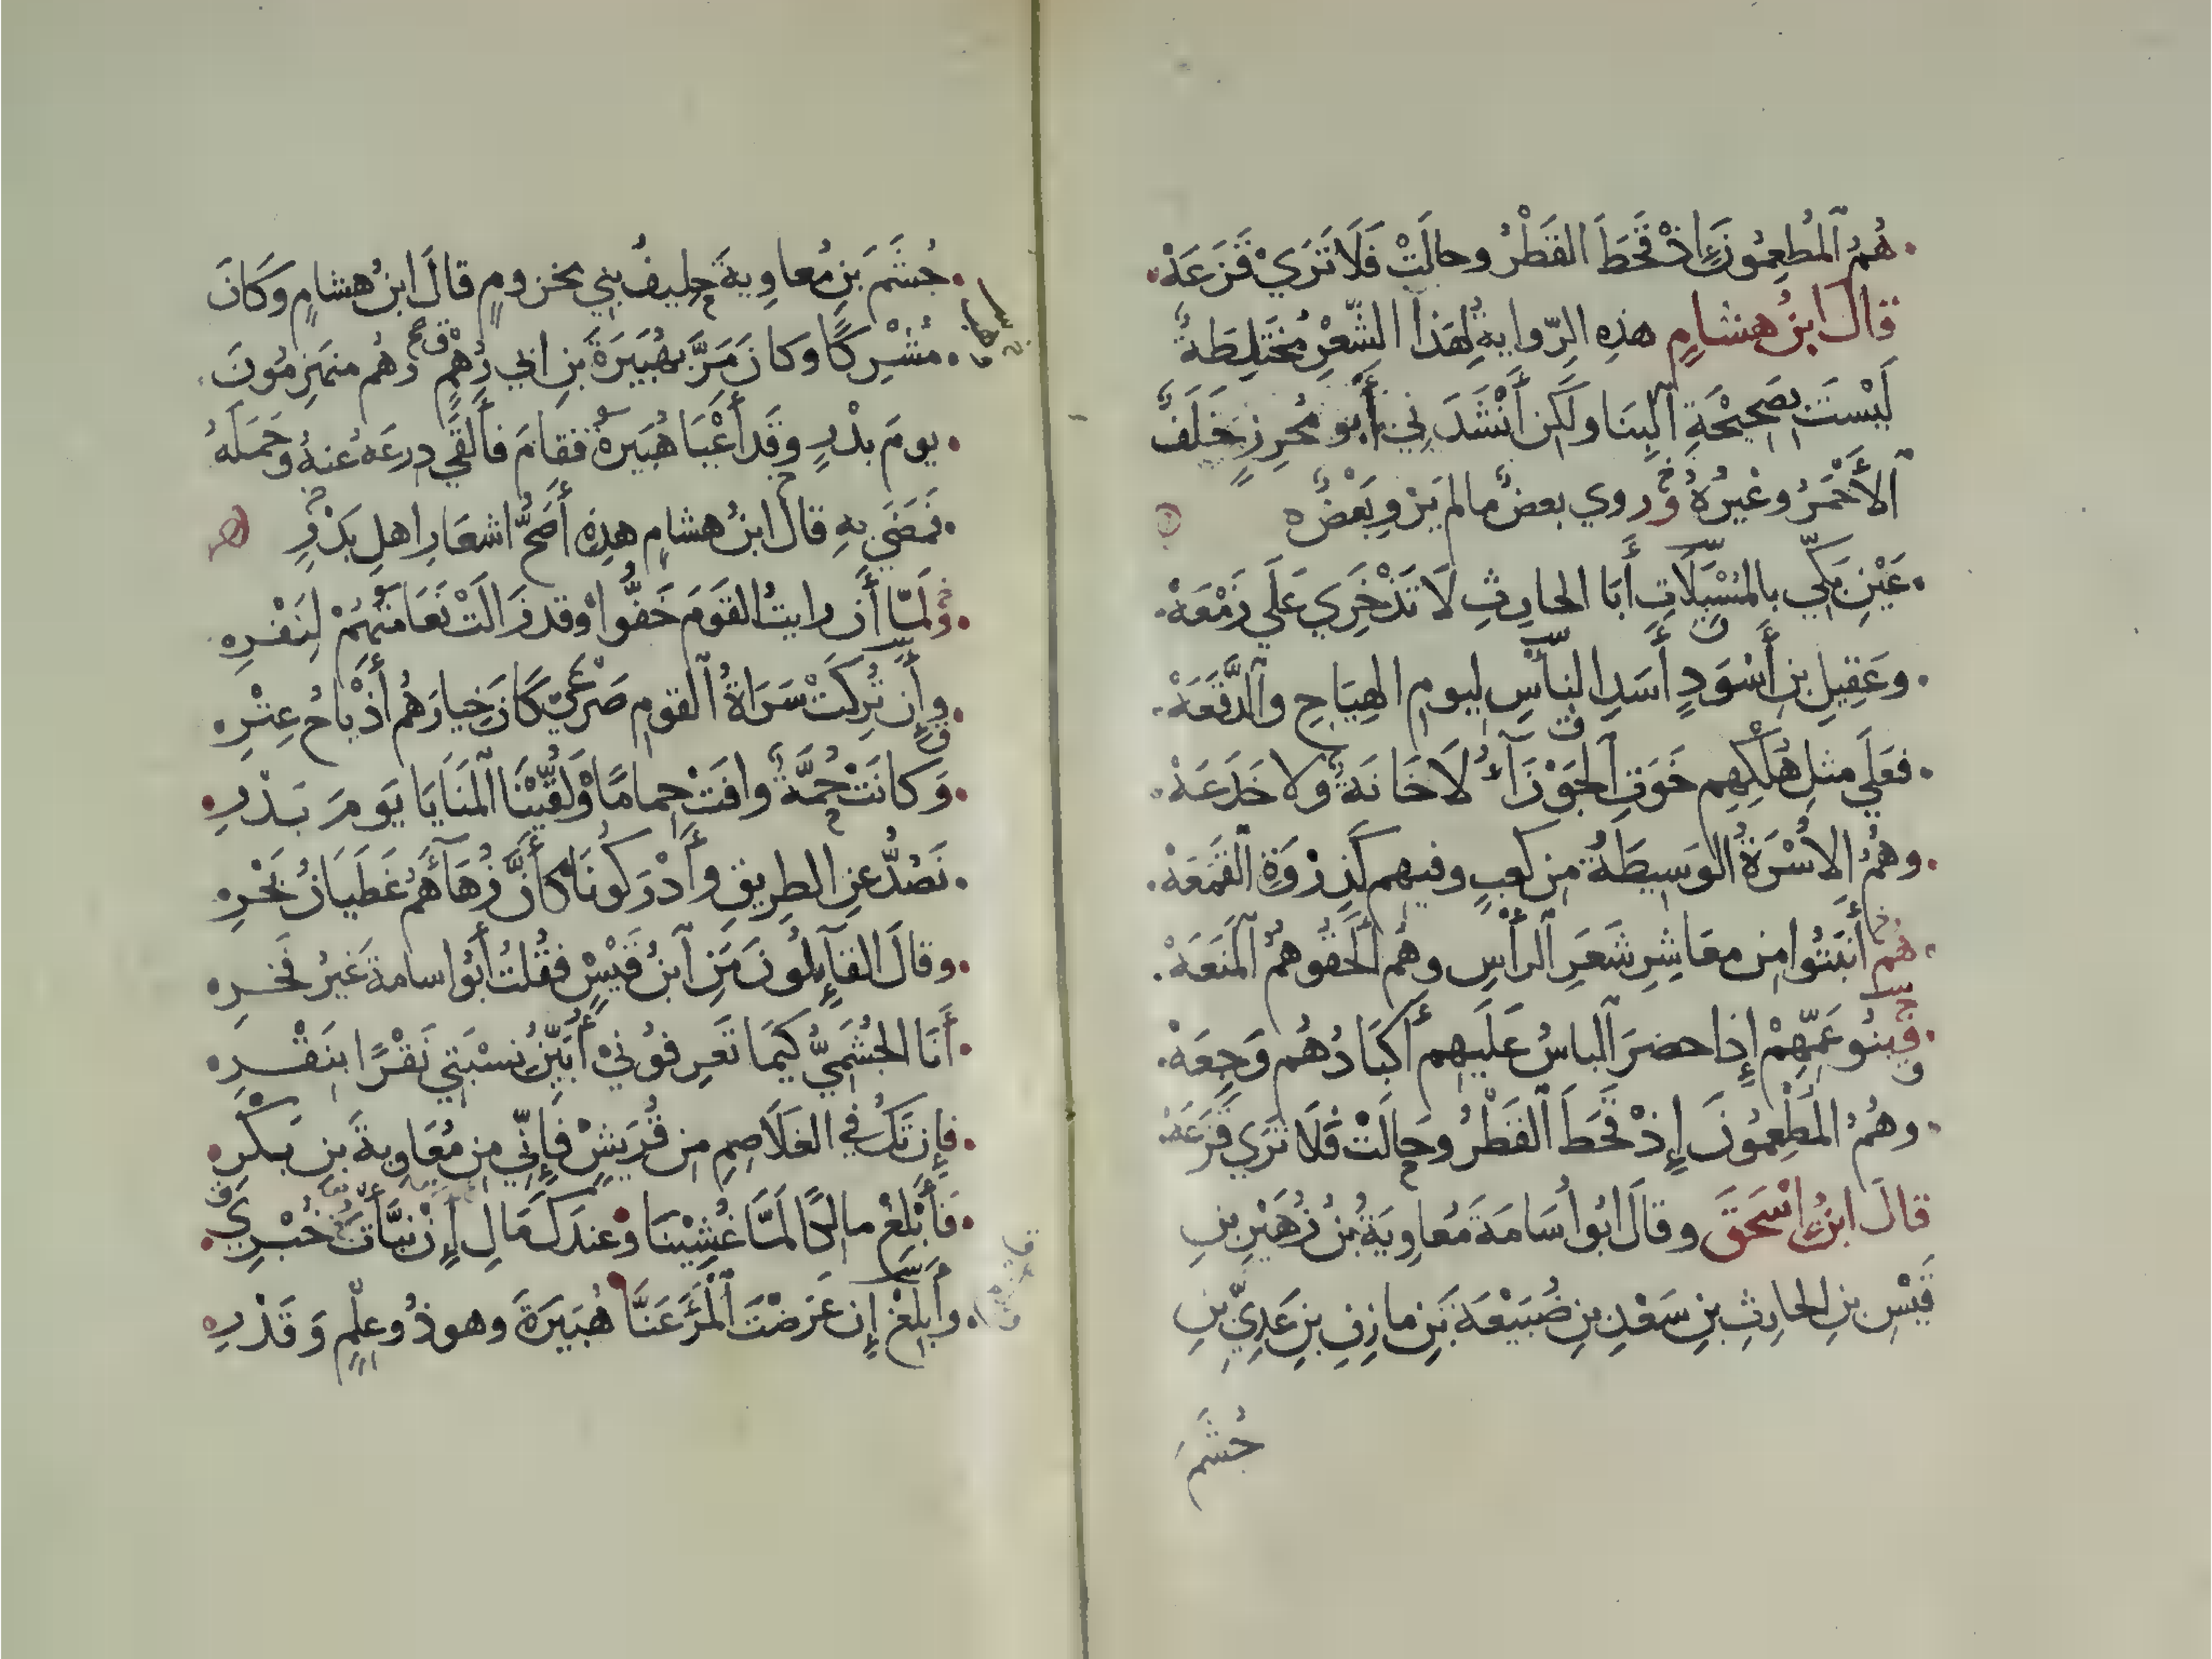 هُمُ ٱلْمُطعِمُونَ إِذْ قَحَطَ القَطْرُ وحالَتْ فَلَا تَرَيْ قَزَعَهْ
قالَ ابنُ هشامٍ هذِهِ الرِّوايةُ لِهَذا الشِّعْرِ مُختَلِطَةٌ
لَيْسَت بِصَحِيْحَةِ ٱلبِنَا ولَكِن أَنْشَدَنِي أَبو مُحرِزٍ خَلَفٌ
ٱلأَحْمَرُ وغيرُهُ وروي بعضٌ مالم يَرْوِ بَعْضٌ
عَيْنِ بَكِّي بِالمُسْبِلَاتِ أَبَا الحارِثِ لَا تَذْخَرِي عَلَي زَمْعَهْ
وعَقِيلِ بنِ أَسْوَدٍ أَسَدِ البَأسِ لِيومِ الهِيَاجِ وٱلدَّفَعَهْ
فعَلَي مثلِ هُلْكِهِم خَوَتِ ٱلجَوْزَآءُ لَا خَانَةٌ ولا خَدَعَهْ
وهُمُ الأُسْرَةُ الوَسِيطَةُ مِن كعبٍ وفيهم كَذِرْوَةِ ٱلقَمَعَهْ
هُم أَنبَتُوا مِن معَاشِرٍ شَعَرَ ٱلرأْسِ وهُم أَلحَقُوهُمُ ٱلمَنَعَهْ
فبَنُو عَمِّهِمْ إِذا حضرَ ٱلباسُ عَلَيهِم أَكبَادُهُم وَجِعَهْ
وهُمُ المُطْعِمُونَ إِذْ قَحَطَ ٱلقَطْرُ وحَالَتْ فَلَا تَرَي قَزَعَهْ
قالَ ابنُ اسْحَقَ وقالَ ابُو أُسَامَةَ مُعاوِيَةُ بنُ زُهَيْرِ بنِ
قَيْسِ بنِ الحارِثِ بنِ سَعْدِ بنِ ضُبَيْعَةَ بنِ مازِنِ بنِ عَدِيِّ بنِ
جُشَمَ
جُشَمَ بنِ مُعاوِيةَ حلِيفُ بنِي مخزومٍ قالَ ابنُ هشامٍ وكَانَ
مُشْرِكًا وكانَ مَرَّ بِهُبَيرَةَ بنِ ابي وهْبٍ وهُم منهَزِمُونَ
يومَ بدْرٍ وقَد أَعْيَا هُبَيرةُ فقامَ فأَلقَي درعَهُ عنهُ وحَمَلَهُ
فمَضَي بِهِ قالَ ابنُ هشامٍ هذِهِ أَصَحُّ اشعَارِ اهلِ بَدْرٍ
ولَمَّا أَن رايتُ القَومَ خَفُّوا وقد زَالَتْ نَعَامَتُهُمْ لِنَفْرِ
وأَن تُرِكَتْ سَرَاةُ ٱلقومِ صَرْعَيْ كَانَ خِيارَهُم أَذْبَاحُ عِتْرِ
وَكانَتْ جُمَّةٌ وافَتْ حِمامًا وَلُقِّيْنَا ٱلمَنَايَا يَومَ بَدْرِ
نَصُدُّ عنِ الطرِيقِ وأَدْرَكُونَا كأَنَّ زُهَآءَهُم غَطَيَانُ بَحْرِ
وقالَ القآئِلُونَ مَنِ ٱبنُ قَيْسٍ فقُلتُ أَبُو اسامةَ غيرُ فَخرِ
أَنَا الجُشَمِيُّ كَيمَا تَعرِفُونِيْ أُبَيِّنُ نِسْبَتِي نَقْرًا بنَقْرِ
فإِن تَكُ في الغَلَاصِمِ مِن قُرَيشٍ فَإِنِّي مِن مُعَاوِيةَ بنِ بَكْرِ
فأَبْلِغْ مالِكًا لَمَّا غُشِيْنَا وعِندَكَ مَالِ إِنْ نَبَّأْتَ خُبْرِي
وأَبلِغْ إِن عَرَضْتَ ٱلْمَرْءَ عَنَّا هُبَيرَةَ وهوذُو عِلْمٍ وَقَدْرِ